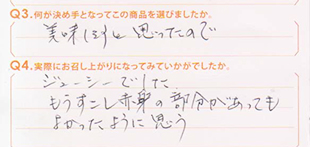 Q3.何が決め手となってこの商品を選びましたか。
美味しそうと思ったので
Q4.実際にお召し上がりになってみていかがでしたか。
ジューシーでした
もうすこし赤身の部分があっても
よかったように思う